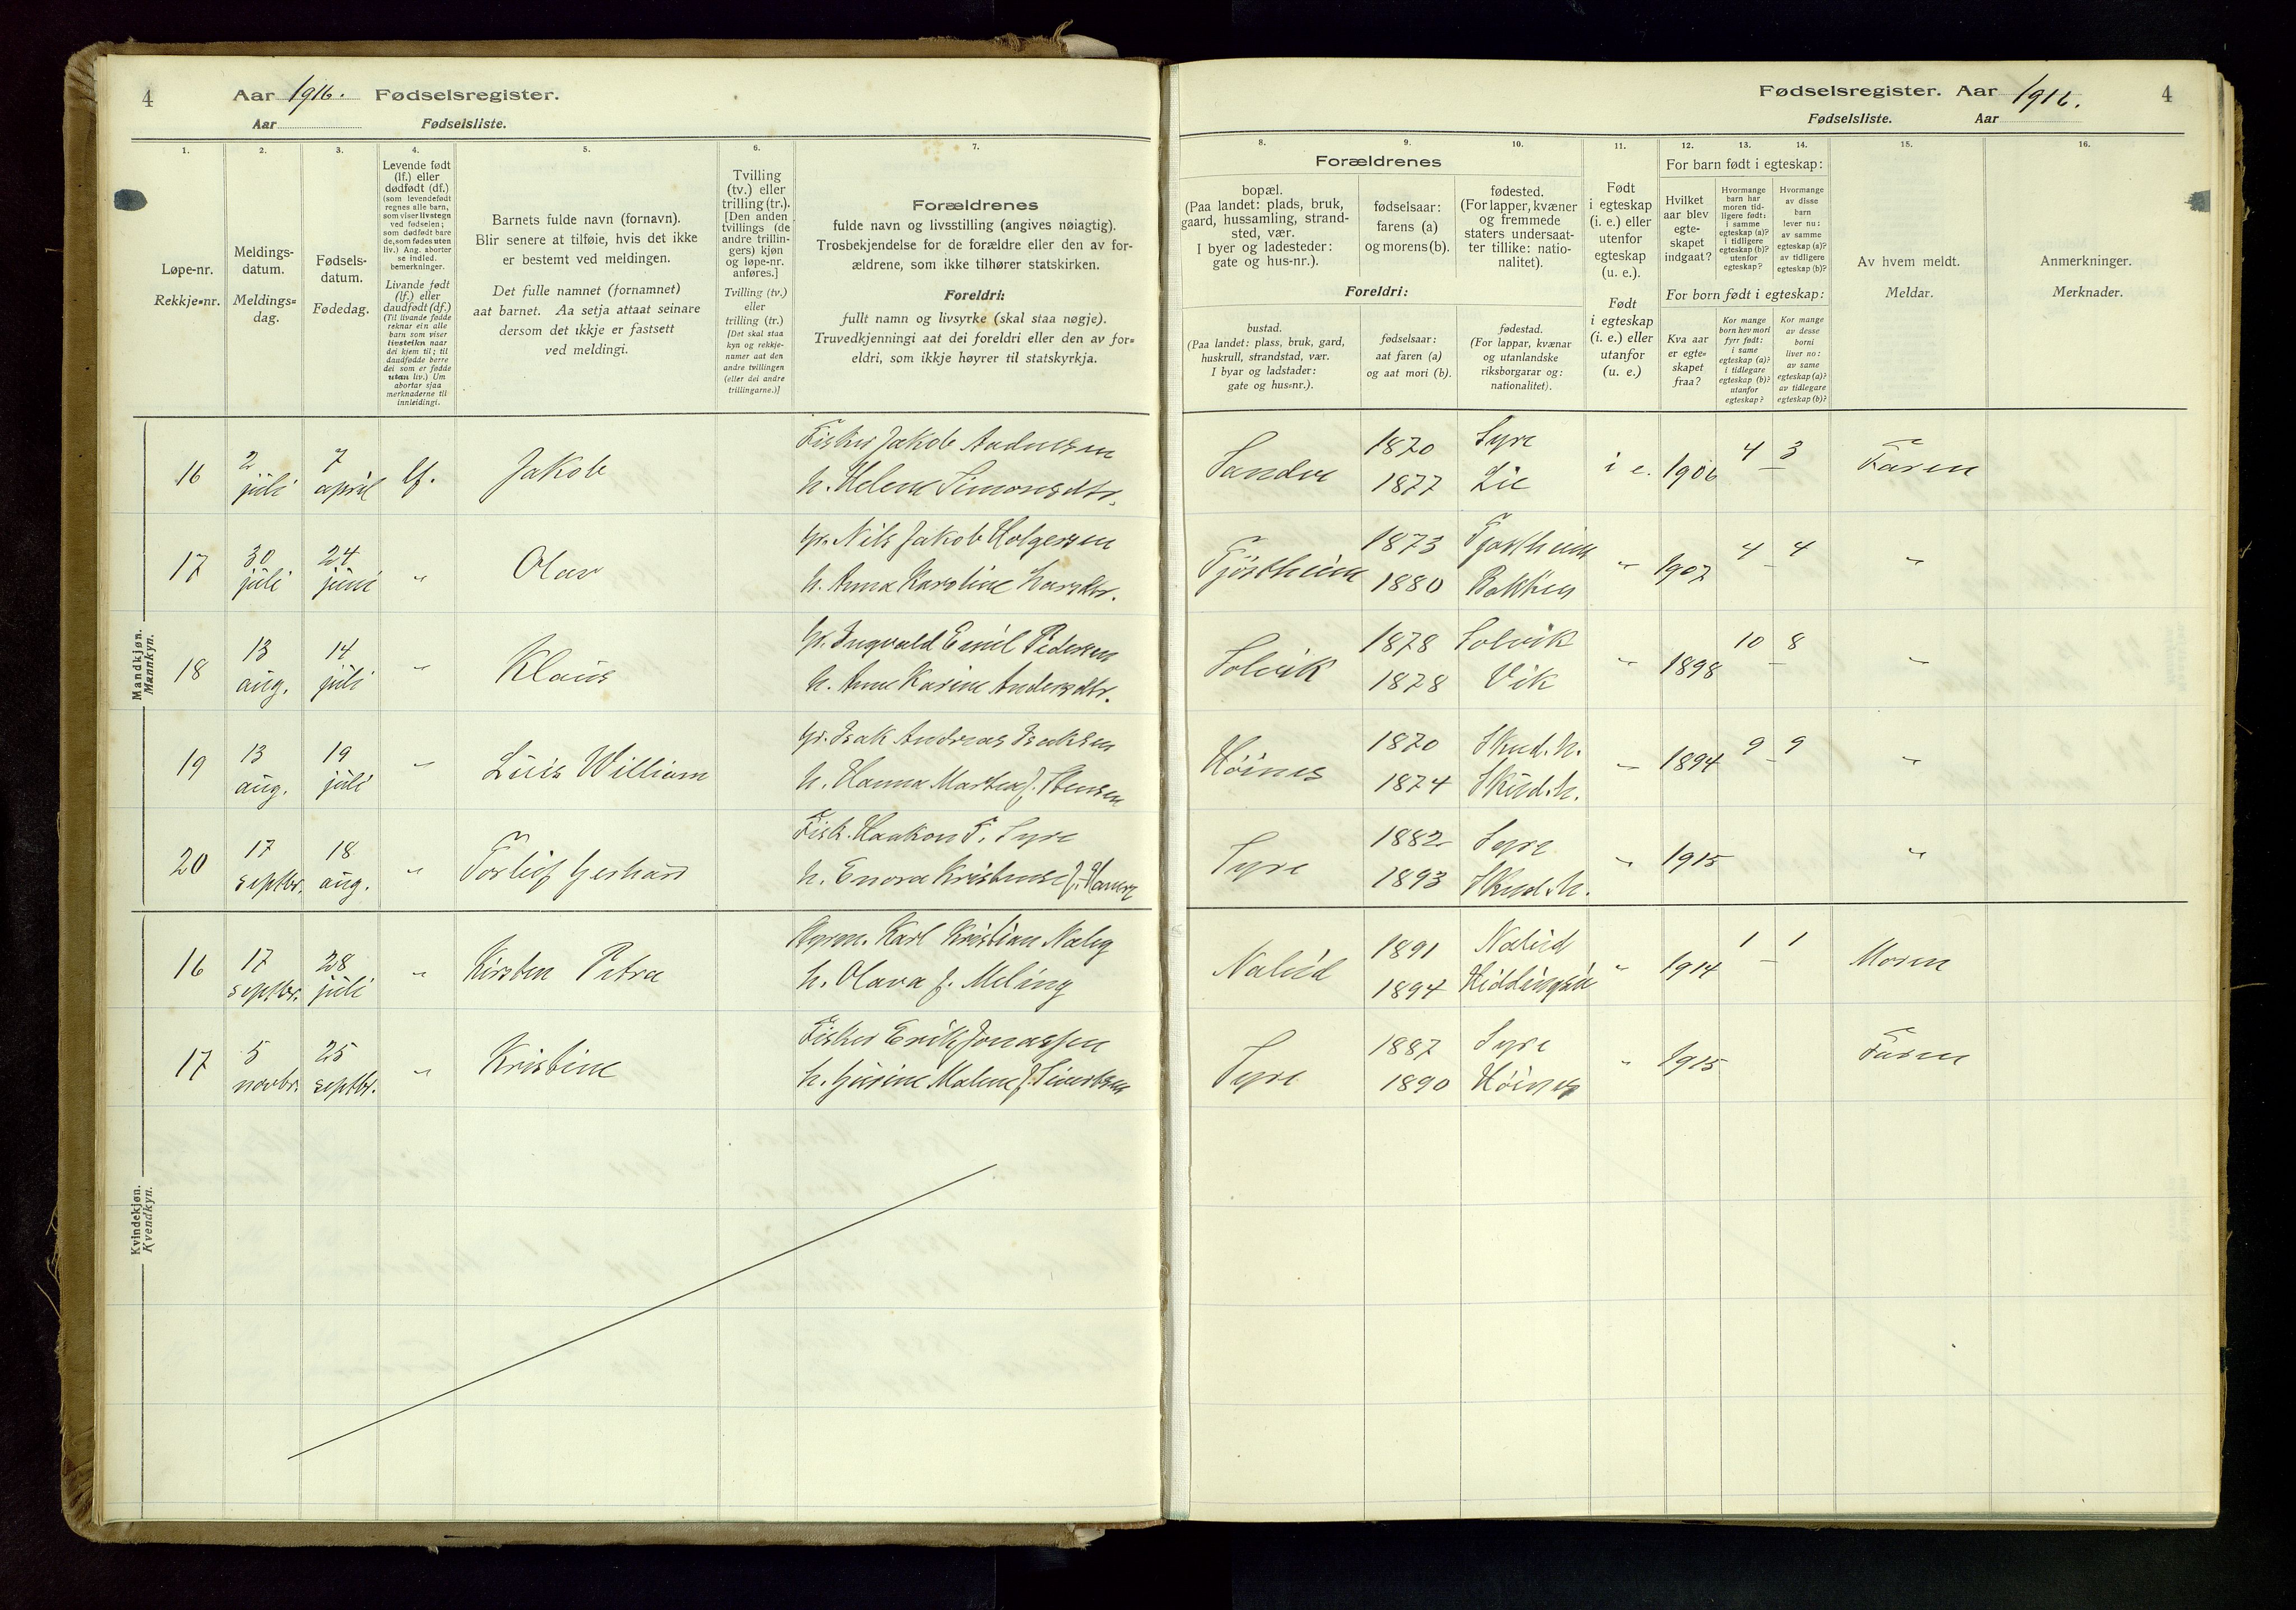 4
Aar 1916. Fødselsregister.
Aar Fødselsliste.
1.
2.
3.
4.
5.
6.
7.
Løpe-nr.
Rekkje=nr.
Meldings-
datum.
Meldings=
dag.
Fødsels-
datum.
Fødedag.
Levende født
(lf.) eller
dødfødt (df.)
(som levendefødt
regnes alle barn,
som viser livstegn
ved fødselen;
som dødfødt bare
de, som fødes uten
liv.) Ang. aborter
se indled.
bemerkninger.
Livande født
(lf.) eller
daudfødt (df.)
(Til livande fødde
reknar ein alle
barn som viser
livsteikn naar
dei kjem til; til
daudfødde berre
dei som er fødde
utan liv.) Um
abortar sjaa
merknaderne til
innleidingi.
Barnets fulde navn (fornavn).
Blir senere at tilføie, hvis det ikke
er bestemt ved meldingen.
Det fulle namnet (fornamnet)
aat barnet. Aa setja attaat seinare
dersom det ikkje er fastsett
ved meldingi.
Tvilling
(tv.) eller
trilling (tr.).
[Den anden
tvillings (de
andre trillin-
gers) kjøn
og løpe-nr.
anføres.]
Tvilling (tv.)
eller
trilling (tr.)
[Det skal staa
kyn og rekkje-
numer aat den
andre tvillingen
(eller dei andre
trillingarne.)]
Forældrenes
fulde navn og livsstilling (angives nøiagtig).
Trosbekjendelse for de forældre eller den av for-
ældrene, som ikke tilhører statskirken.
Foreldri:
fullt namn og livsyrke (skal staa nøgje).
Truvedkjenningi aat dei foreldri eller den av for=
eldri, som ikkje høyrer til statskyrkja.
Mandkjøn.
Mannkyn.
16
2
juli
7
april
lf.
Jakob
Fisker Jakob Aadnesen
h. Helene Simonsdtr.
17
30
juli
24
juni
"
Olav
Gr. Nils Jakob Holgersen
h. Anna Karoline Larsdtr.
18
13
aug.
14
juli
"
Klaus
Gr. Ingvald Emil Pedersen
h. Anne Karine Andersdtr.
19
13
aug.
19
juli
"
Luis William
Gr. Isak Andreas Isaksen
h. Hanna Martea f. Stensen
20
17
septbr.
18
aug.
"
Torleif Gerhard
Fisk. Haakon T. Syre
h. Enora Kristense f.
Kvindekjøn.
Kvendkyn.
16
17
septbr.
28
juli
"
Kirsten Petra
Styrm. Karl Kristian
h. Olava f. Meling
17
5
novbr.
25
septbr.
"
Kristine
Fisker Erik Jonassen
h. Gurine Malene f. Sivertsen
Fødselsregister. Aar 1916.
4
Fødselsliste. Aar
8.
9.
10.
11.
12.
13.
14.
15.
16.
Forældrenes
bopæl.
(Paa landet: plads, bruk,
gaard, hussamling, strand-
sted, vær.
I byer og ladesteder:
gate og hus-nr.).
fødselsaar:
farens (a)
og morens (b).
fødested.
(For lapper, kvæner
og fremmede
staters undersaat-
ter tillike: natio-
nalitet).
Foreldri:
bustad.
(Paa landet: plass, bruk, gard,
huskrull, strandstad, vær.
I byar og ladstader:
gate og hus=nr.).
fødselsaar:
aat faren (a)
og aat mori (b).
fødestad.
(For lappar, kvænar
og utanlandske
riksborgarar og:
nationalitet).
Født
i egteskap
(i. e.) eller
utenfor
egteskap
(u. e.).
Født
i egteskap
(i. e.) eller
utanfor
(u. e.)
For barn født i egteskap:
Hvilket
aar blev
egte-
skapet
indgaat?
Hvormange
barn har
moren tid-
ligere født:
i samme
egteskap (a)?
i tidligere
egteskap (b)?
utenfor
egteskap?
Hvormange
av disse
barn
lever nu:
av samme
egteskap (a)?
av tidligere
egteskap (b)?
For born født i egteskap:
Kva aar
er egte=
skapet
fraa?
Kor mange
born hev mori
fyrr født:
i same
egteskap (a)?
i tidlegare
egteskap (b)?
utanfor
egteskap?
Kor mange
av desse
borni
liver no:
av same
egteskap (a)?
av tidlegare
egteskap (b)?
Av hvem meldt.
Meldar.
Anmerkninger.
Merknader.
Sandve
1870
1877
Syre
Lie
i e.
1906
4 – 3
Faren
Tjøstheim
1873
1880
Tjøstheim
Bakken
"
1907
4 – 4
"
Solvik
1878
1878
Solvik
Vik
"
1898
10 – 8
"
Høines
1870
1874
Skud.h.
Skud.h.
"
1894
9 – 9
"
Syre
1882
1893
Syre
Skud.h.
"
1915
"
Nalud
1891
1894
Nalud
"
1914
1 – 1
Moren
Syre
1887
1890
Syre
Høines
"
1915
Faren